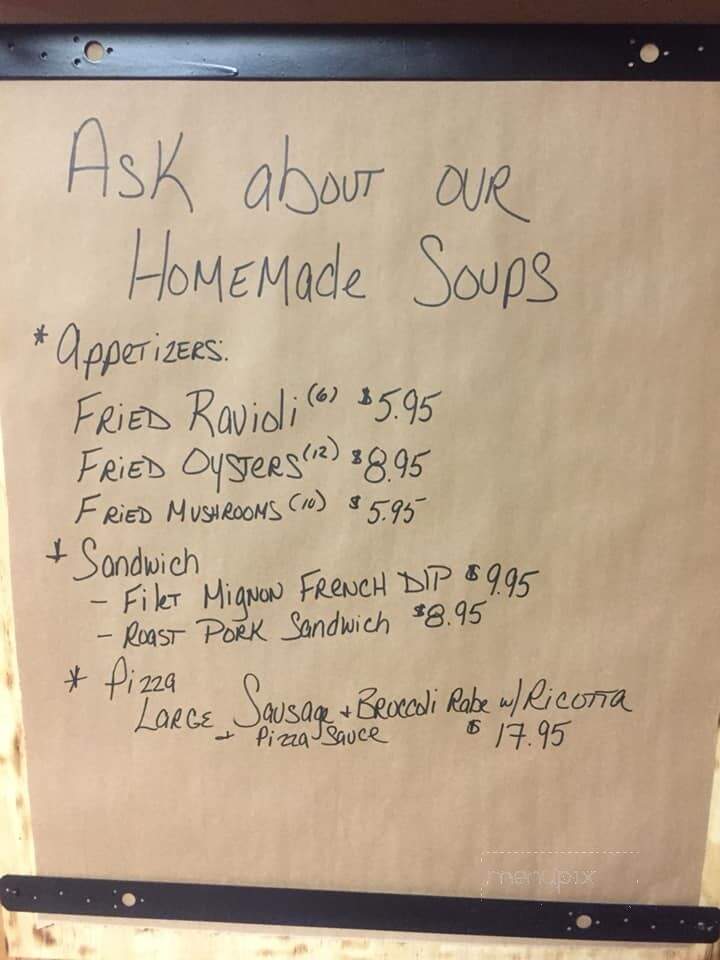 Ask about our
Homemade Soups
* Appetizers:
Fried Ravioli (6) $5.95
Fried Oysters (12) $8.95
Fried Mushrooms (10) $5.95
* Sandwich
- Filet Mignon French Dip $9.95
- Roast Pork Sandwich $8.95
* Pizza
Large Sausage + Broccoli Rabe w/Ricotta
+ Pizza Sauce $17.95
menupix